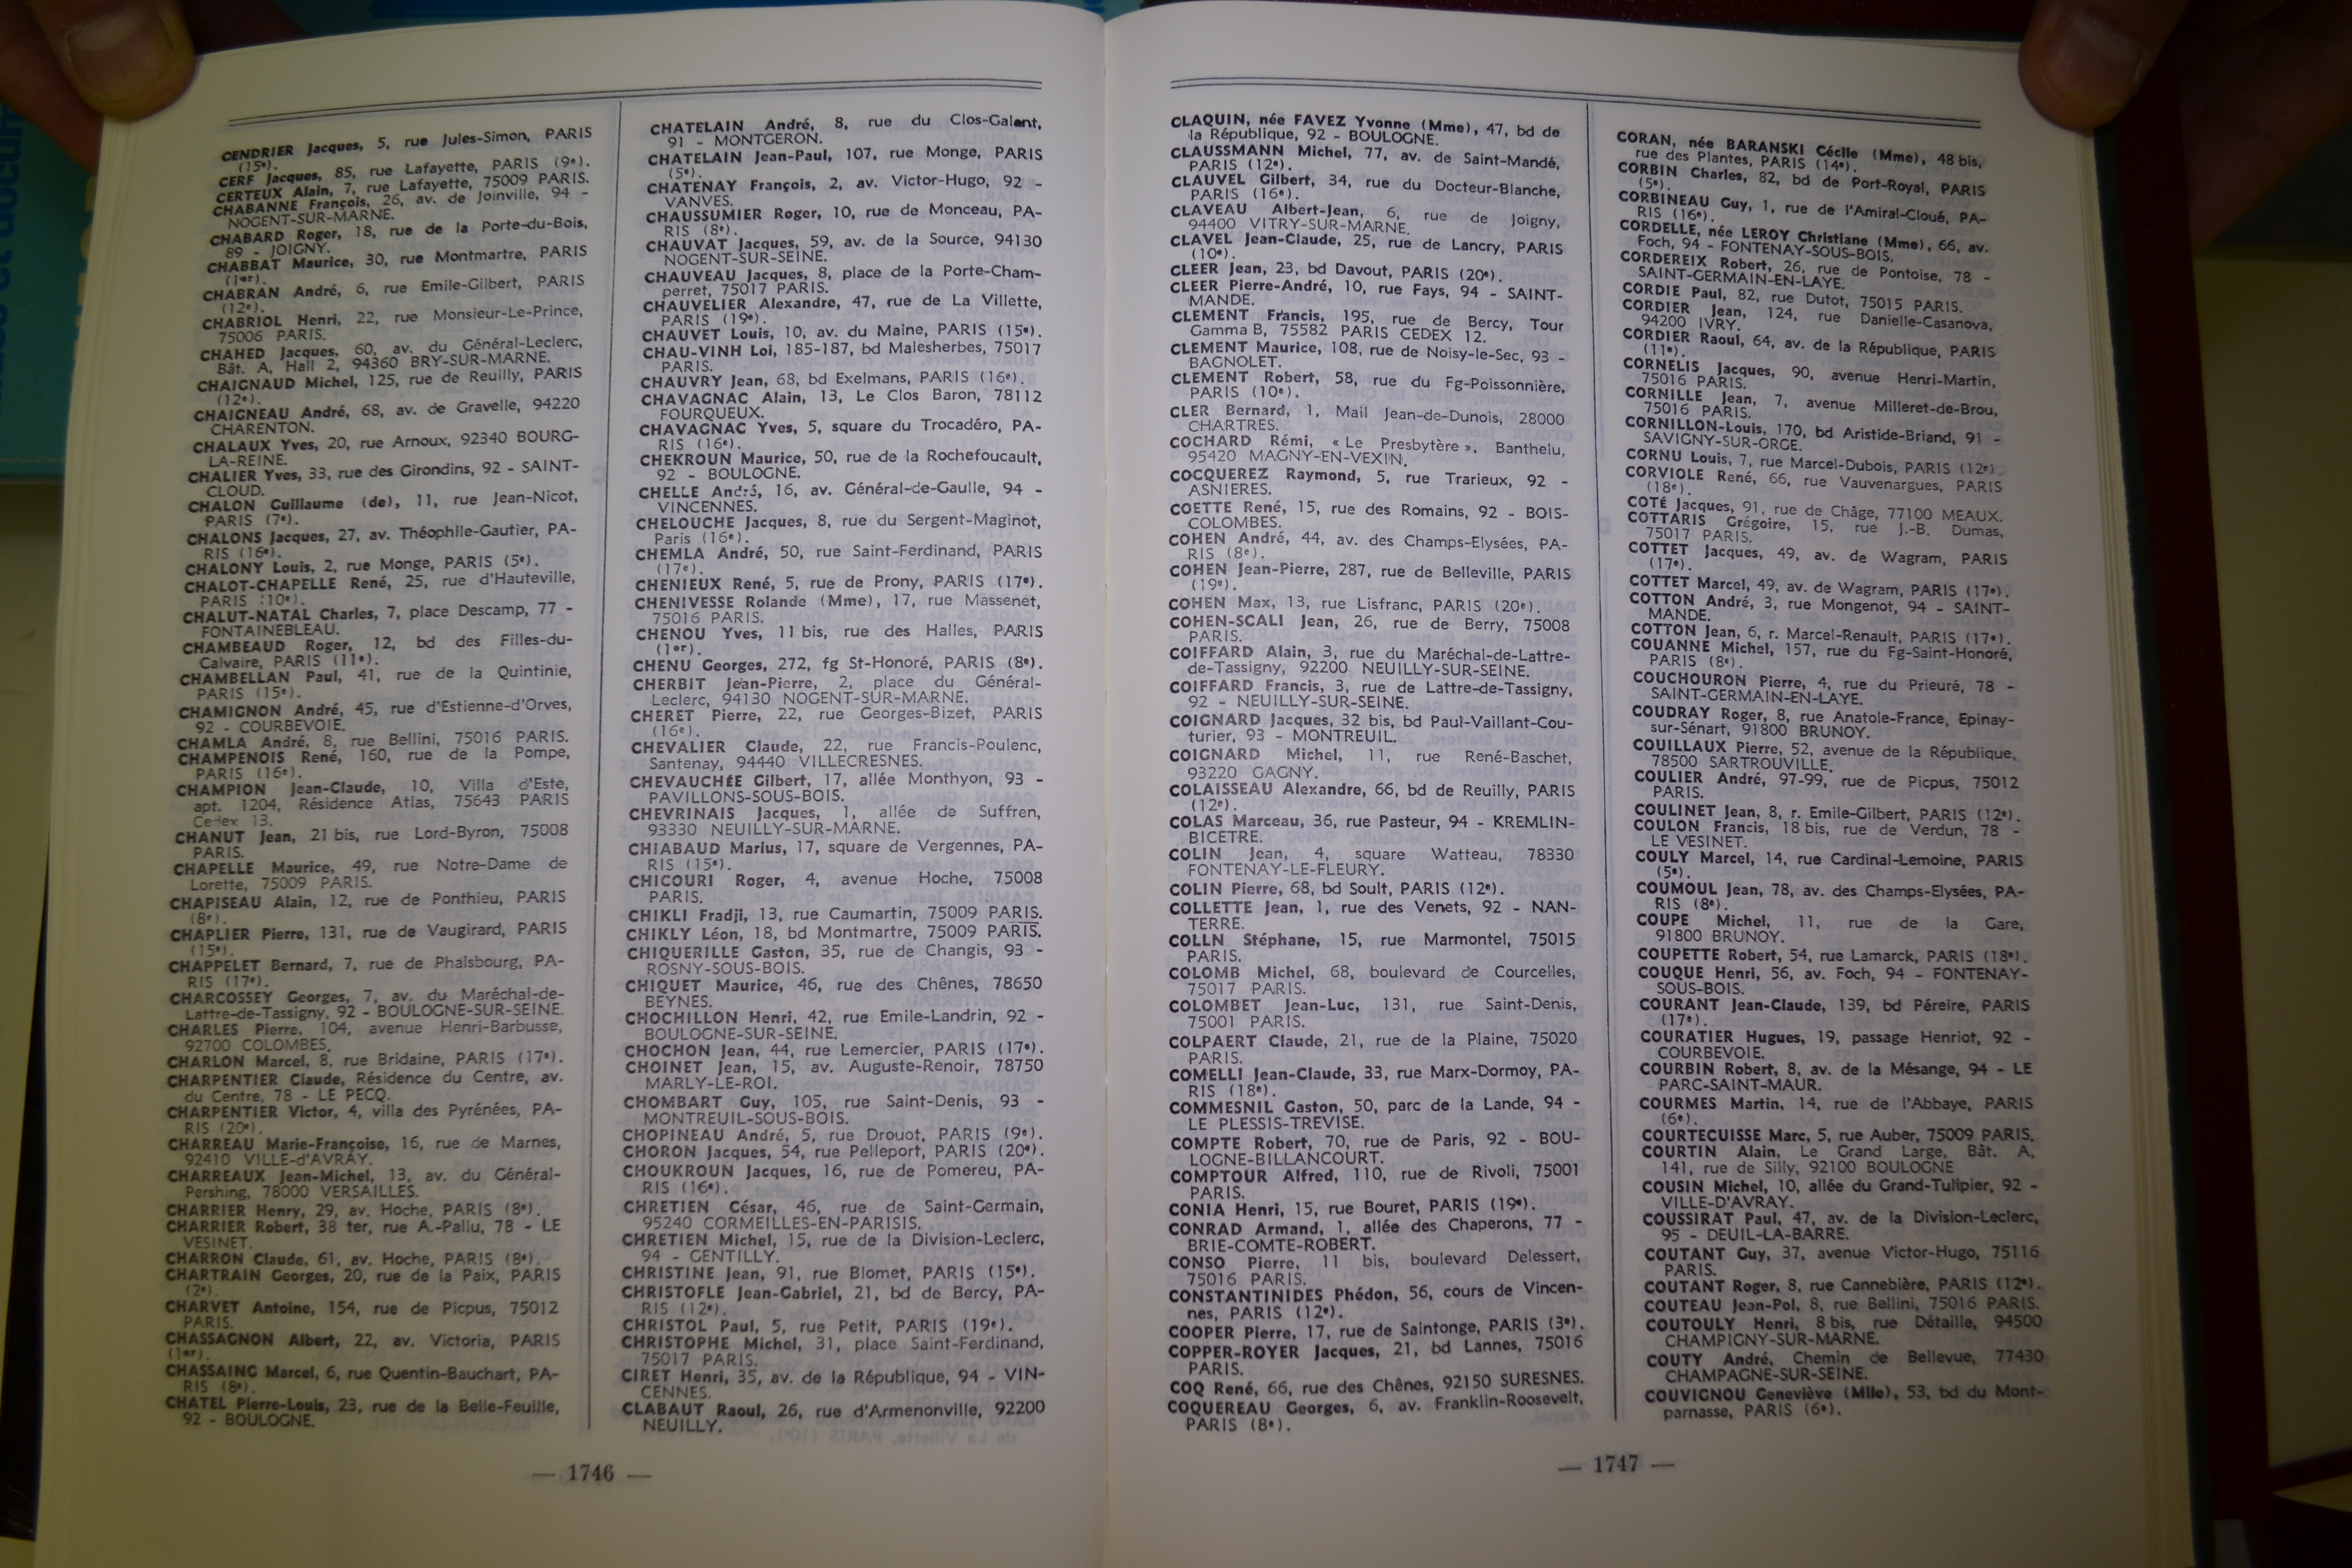 CENDRIER Jacques, 5, rue Jules-Simon, PARIS
(15e).
CERF Jacques, 85, rue Lafayette, PARIS (9e).
CERTEUX Alain, 7, rue Lafayette, 75009 PARIS.
CHABANNE François, 26, av. de Joinville, 94 -
NOGENT-SUR-MARNE.
CHABARD Roger, 18, rue de la Porte-du-Bois,
89 - JOIGNY.
CHABBAT Maurice, 30, rue Montmartre, PARIS
(1er).
CHABRAN André, 6, rue Emile-Gilbert, PARIS
(12e).
CHABRIOL Henri, 22, rue Monsieur-Le-Prince,
75006 PARIS.
CHAHED Jacques, 60, av. du Général-Leclerc,
Bât. A, Hall 2, 94360 BRY-SUR-MARNE.
CHAIGNAUD Michel, 125, rue de Reuilly, PARIS
(12e).
CHAIGNEAU André, 68, av. de Gravelle, 94220
CHARENTON.
CHALAUX Yves, 20, rue Arnoux, 92340 BOURG-
LA-REINE.
CHALIER Yves, 33, rue des Girondins, 92 - SAINT-
CLOUD.
CHALON Guillaume (de), 11, rue Jean-Nicot,
PARIS (7e).
CHALONS Jacques, 27, av. Théophile-Gautier, PA-
RIS (16e).
CHALONY Louis, 2, rue Monge, PARIS (5e).
CHALOT-CHAPELLE René, 25, rue d'Hauteville,
PARIS (10e).
CHALUT-NATAL Charles, 7, place Descamp, 77 -
FONTAINEBLEAU.
CHAMBEAUD Roger, 12, bd des Filles-du-
Calvaire, PARIS (11e).
CHAMBELLAN Paul, 41, rue de la Quintinie,
PARIS (15e).
CHAMIGNON André, 45, rue d'Estienne-d'Orves,
92 - COURBEVOIE.
CHAMLA André, 8, rue Bellini, 75016 PARIS.
CHAMPENOIS René, 160, rue de la Pompe,
PARIS (16e).
CHAMPION Jean-Claude, 10, Villa d'Este,
apt. 1204, Résidence Atlas, 75643 PARIS
Cedex 13.
CHANUT Jean, 21 bis, rue Lord-Byron, 75008
PARIS.
CHAPELLE Maurice, 49, rue Notre-Dame de
Lorette, 75009 PARIS.
CHAPISEAU Alain, 12, rue de Ponthieu, PARIS
(8e).
CHAPLIER Pierre, 131, rue de Vaugirard, PARIS
(15e).
CHAPPELET Bernard, 7, rue de Phalsbourg, PA-
RIS (17e).
CHARCOSSEY Georges, 7, av. du Maréchal-de-
Lattre-de-Tassigny, 92 - BOULOGNE-SUR-SEINE.
CHARLES Pierre, 104, avenue Henri-Barbusse,
92700 COLOMBES.
CHARLON Marcel, 8, rue Bridaine, PARIS (17e).
CHARPENTIER Claude, Résidence du Centre, av.
du Centre, 78 - LE PECQ.
CHARPENTIER Victor, 4, villa des Pyrénées, PA-
RIS (20e).
CHARREAU Marie-Françoise, 16, rue de Marnes,
92410 VILLE-d'AVRAY.
CHARREAUX Jean-Michel, 13, av. du Général-
Pershing, 78000 VERSAILLES.
CHARRIER Henry, 29, av. Hoche, PARIS (8e).
CHARRIER Robert, 38 ter, rue A.-Pallu, 78 - LE
VESINET.
CHARRON Claude, 61, av. Hoche, PARIS (8e).
CHARTRAIN Georges, 20, rue de la Paix, PARIS
(2e).
CHARVET Antoine, 154, rue de Picpus, 75012
PARIS.
CHASSAGNON Albert, 22, av. Victoria, PARIS
(1er).
CHASSAING Marcel, 6, rue Quentin-Bauchart, PA-
RIS (8e).
CHATEL Pierre-Louis, 23, rue de la Belle-Feuille,
92 - BOULOGNE.
CHATELAIN André, 8, rue du Clos-Galant,
91 - MONTGERON.
CHATELAIN Jean-Paul, 107, rue Monge, PARIS
(5e).
CHATENAY François, 2, av. Victor-Hugo, 92 -
VANVES.
CHAUSSUMIER Roger, 10, rue de Monceau, PA-
RIS (8e).
CHAUVAT Jacques, 59, av. de la Source, 94130
NOGENT-SUR-SEINE.
CHAUVEAU Jacques, 8, place de la Porte-Cham-
perret, 75017 PARIS.
CHAUVELIER Alexandre, 47, rue de La Villette,
PARIS (19e).
CHAUVET Louis, 10, av. du Maine, PARIS (15e).
CHAU-VINH Loi, 185-187, bd Malesherbes, 75017
PARIS.
CHAUVRY Jean, 68, bd Exelmans, PARIS (16e).
CHAVAGNAC Alain, 13, Le Clos Baron, 78112
FOURQUEUX.
CHAVAGNAC Yves, 5, square du Trocadéro, PA-
RIS (16e).
CHEKROUN Maurice, 50, rue de la Rochefoucault,
92 - BOULOGNE.
CHELLE André, 16, av. Général-de-Gaulle, 94 -
VINCENNES.
CHELOUCHE Jacques, 8, rue du Sergent-Maginot,
Paris (16e).
CHEMLA André, 50, rue Saint-Ferdinand, PARIS
(17e).
CHENIEUX René, 5, rue de Prony, PARIS (17e).
CHENIVESSE Rolande (Mme), 17, rue Massenet,
75016 PARIS.
CHENOU Yves, 11 bis, rue des Halles, PARIS
(1er).
CHENU Georges, 272, fg St-Honoré, PARIS (8e).
CHERBIT Jean-Pierre, 2, place du Général-
Leclerc, 94130 NOGENT-SUR-MARNE.
CHERET Pierre, 22, rue Georges-Bizet, PARIS
(16e).
CHEVALIER Claude, 22, rue Francis-Poulenc,
Santenay, 94440 VILLECRESNES.
CHEVAUCHÉE Gilbert, 17, allée Monthyon, 93 -
PAVILLONS-SOUS-BOIS.
CHEVRINAIS Jacques, 1, allée de Suffren,
93330 NEUILLY-SUR-MARNE.
CHIABAUD Marius, 17, square de Vergennes, PA-
RIS (15e).
CHICOURI Roger, 4, avenue Hoche, 75008
PARIS.
CHIKLI Fradji, 13, rue Caumartin, 75009 PARIS.
CHIKLY Léon, 18, bd Montmartre, 75009 PARIS.
CHIQUERILLE Gaston, 35, rue de Changis, 93 -
ROSNY-SOUS-BOIS.
CHIQUET Maurice, 46, rue des Chênes, 78650
BEYNES.
CHOCHILLON Henri, 42, rue Emile-Landrin, 92 -
BOULOGNE-SUR-SEINE.
CHOCHON Jean, 44, rue Lemercier, PARIS (17e).
CHOINET Jean, 15, av. Auguste-Renoir, 78750
MARLY-LE-ROI.
CHOMBART Guy, 105, rue Saint-Denis, 93 -
MONTREUIL-SOUS-BOIS.
CHOPINEAU André, 5, rue Drouot, PARIS (9e).
CHORON Jacques, 54, rue Pelleport, PARIS (20e).
CHOUKROUN Jacques, 16, rue de Pomereu, PA-
RIS (16e).
CHRETIEN César, 46, rue de Saint-Germain,
95240 CORMEILLES-EN-PARISIS.
CHRETIEN Michel, 15, rue de la Division-Leclerc,
94 - GENTILLY.
CHRISTINE Jean, 91, rue Blomet, PARIS (15e).
CHRISTOFLE Jean-Gabriel, 21, bd de Bercy, PA-
RIS (12e).
CHRISTOL Paul, 5, rue Petit, PARIS (19e).
CHRISTOPHE Michel, 31, place Saint-Ferdinand,
75017 PARIS.
CIRET Henri, 35, av. de la République, 94 - VIN-
CENNES.
CLABAUT Raoul, 26, rue d'Armenonville, 92200
NEUILLY.
— 1746 —
CLAQUIN, née FAVEZ Yvonne (Mme), 47, bd de
la République, 92 - BOULOGNE.
CLAUSSMANN Michel, 77, av. de Saint-Mandé,
PARIS (12e).
CLAUVEL Gilbert, 34, rue du Docteur-Blanche,
PARIS (16e).
CLAVEAU Albert-Jean, 6, rue de Joigny,
94400 VITRY-SUR-MARNE.
CLAVEL Jean-Claude, 25, rue de Lancry, PARIS
(10e).
CLEER Jean, 23, bd Davout, PARIS (20e).
CLEER Pierre-André, 10, rue Fays, 94 - SAINT-
MANDE.
CLEMENT Francis, 195, rue de Bercy, Tour
Gamma B, 75582 PARIS CEDEX 12.
CLEMENT Maurice, 108, rue de Noisy-le-Sec, 93 -
BAGNOLET.
CLEMENT Robert, 58, rue du Fg-Poissonnière,
PARIS (10e).
CLER Bernard, 1, Mail Jean-de-Dunois, 28000
CHARTRES.
COCHARD Rémi, « Le Presbytère », Banthelu,
95420 MAGNY-EN-VEXIN.
COCQUEREZ Raymond, 5, rue Trarieux, 92 -
ASNIERES.
COETTE René, 15, rue des Romains, 92 - BOIS-
COLOMBES.
COHEN André, 44, av. des Champs-Elysées, PA-
RIS (8e).
COHEN Jean-Pierre, 287, rue de Belleville, PARIS
(19e).
COHEN Max, 13, rue Lisfranc, PARIS (20e).
COHEN-SCALI Jean, 26, rue de Berry, 75008
PARIS.
COIFFARD Alain, 3, rue du Maréchal-de-Lattre-
de-Tassigny, 92200 NEUILLY-SUR-SEINE.
COIFFARD Francis, 3, rue de Lattre-de-Tassigny,
92 - NEUILLY-SUR-SEINE.
COIGNARD Jacques, 32 bis, bd Paul-Vaillant-Cou-
turier, 93 - MONTREUIL.
COIGNARD Michel, 11, rue René-Baschet,
93220 GAGNY.
COLAISSEAU Alexandre, 66, bd de Reuilly, PARIS
(12e).
COLAS Marceau, 36, rue Pasteur, 94 - KREMLIN-
BICETRE.
COLIN Jean, 4, square Watteau, 78330
FONTENAY-LE-FLEURY.
COLIN Pierre, 68, bd Soult, PARIS (12e).
COLLETTE Jean, 1, rue des Venets, 92 - NAN-
TERRE.
COLLN Stéphane, 15, rue Marmontel, 75015
PARIS.
COLOMB Michel, 68, boulevard de Courcelles,
75017 PARIS.
COLOMBET Jean-Luc, 131, rue Saint-Denis,
75001 PARIS.
COLPAERT Claude, 21, rue de la Plaine, 75020
PARIS.
COMELLI Jean-Claude, 33, rue Marx-Dormoy, PA-
RIS (18e).
COMMESNIL Gaston, 50, parc de la Lande, 94 -
LE PLESSIS-TREVISE.
COMPTE Robert, 70, rue de Paris, 92 - BOU-
LOGNE-BILLANCOURT.
COMPTOUR Alfred, 110, rue de Rivoli, 75001
PARIS.
CONIA Henri, 15, rue Bouret, PARIS (19e).
CONRAD Armand, 1, allée des Chaperons, 77 -
BRIE-COMTE-ROBERT.
CONSO Pierre, 11 bis, boulevard Delessert,
75016 PARIS.
CONSTANTINIDES Phédon, 56, cours de Vincen-
nes, PARIS (12e).
COOPER Pierre, 17, rue de Saintonge, PARIS (3e).
COPPER-ROYER Jacques, 21, bd Lannes, 75016
PARIS.
COQ René, 66, rue des Chênes, 92150 SURESNES.
COQUEREAU Georges, 6, av. Franklin-Roosevelt,
PARIS (8e).
CORAN, née BARANSKI Cécile (Mme), 48 bis,
rue des Plantes, PARIS (14e).
CORBIN Charles, 82, bd de Port-Royal, PARIS
(5e).
CORBINEAU Guy, 1, rue de l'Amiral-Cloué, PA-
RIS (16e).
CORDELLE, née LEROY Christiane (Mme), 66, av.
Foch, 94 - FONTENAY-SOUS-BOIS.
CORDEREIX Robert, 26, rue de Pontoise, 78 -
SAINT-GERMAIN-EN-LAYE.
CORDIE Paul, 82, rue Dutot, 75015 PARIS.
CORDIER Jean, 124, rue Danielle-Casanova,
94200 IVRY.
CORDIER Raoul, 64, av. de la République, PARIS
(11e).
CORNELIS Jacques, 90, avenue Henri-Martin,
75016 PARIS.
CORNILLE Jean, 7, avenue Milleret-de-Brou,
75016 PARIS.
CORNILLON-Louis, 170, bd Aristide-Briand, 91 -
SAVIGNY-SUR-ORGE.
CORNU Louis, 7, rue Marcel-Dubois, PARIS (12e).
CORVIOLE René, 66, rue Vauvenargues, PARIS
(18e).
COTÉ Jacques, 91, rue de Châge, 77100 MEAUX.
COTTARIS Grégoire, 15, rue J.-B. Dumas,
75017 PARIS.
COTTET Jacques, 49, av. de Wagram, PARIS
(17e).
COTTET Marcel, 49, av. de Wagram, PARIS (17e).
COTTON André, 3, rue Mongenot, 94 - SAINT-
MANDE.
COTTON Jean, 6, r. Marcel-Renault, PARIS (17e).
COUANNE Michel, 157, rue du Fg-Saint-Honoré,
PARIS (8e).
COUCHOURON Pierre, 4, rue du Prieuré, 78 -
SAINT-GERMAIN-EN-LAYE.
COUDRAY Roger, 8, rue Anatole-France, Epinay-
sur-Sénart, 91800 BRUNOY.
COUILLAUX Pierre, 52, avenue de la République,
78500 SARTROUVILLE.
COULIER André, 97-99, rue de Picpus, 75012
PARIS.
COULINET Jean, 8, r. Emile-Gilbert, PARIS (12e).
COULON Francis, 18 bis, rue de Verdun, 78 -
LE VESINET.
COULY Marcel, 14, rue Cardinal-Lemoine, PARIS
(5e).
COUMOUL Jean, 78, av. des Champs-Elysées, PA-
RIS (8e).
COUPE Michel, 11, rue de la Gare,
91800 BRUNOY.
COUPETTE Robert, 54, rue Lamarck, PARIS (18e).
COUQUE Henri, 56, av. Foch, 94 - FONTENAY-
SOUS-BOIS.
COURANT Jean-Claude, 139, bd Péreire, PARIS
(17e).
COURATIER Hugues, 19, passage Henriot, 92 -
COURBEVOIE.
COURBIN Robert, 8, av. de la Mésange, 94 - LE
PARC-SAINT-MAUR.
COURMES Martin, 14, rue de l'Abbaye, PARIS
(6e).
COURTECUISSE Marc, 5, rue Auber, 75009 PARIS.
COURTIN Alain, Le Grand Large, Bât. A,
141, rue de Silly, 92100 BOULOGNE
COUSIN Michel, 10, allée du Grand-Tulipier, 92 -
VILLE-D'AVRAY.
COUSSIRAT Paul, 47, av. de la Division-Leclerc,
95 - DEUIL-LA-BARRE.
COUTANT Guy, 37, avenue Victor-Hugo, 75116
PARIS.
COUTANT Roger, 8, rue Cannebière, PARIS (12e).
COUTEAU Jean-Pol, 8, rue Bellini, 75016 PARIS.
COUTOULY Henri, 8 bis, rue Détaille, 94500
CHAMPIGNY-SUR-MARNE.
COUTY André, Chemin de Bellevue, 77430
CHAMPAGNE-SUR-SEINE.
COUVIGNOU Geneviève (Mlle), 53, bd du Mont-
parnasse, PARIS (6e).
— 1747 —